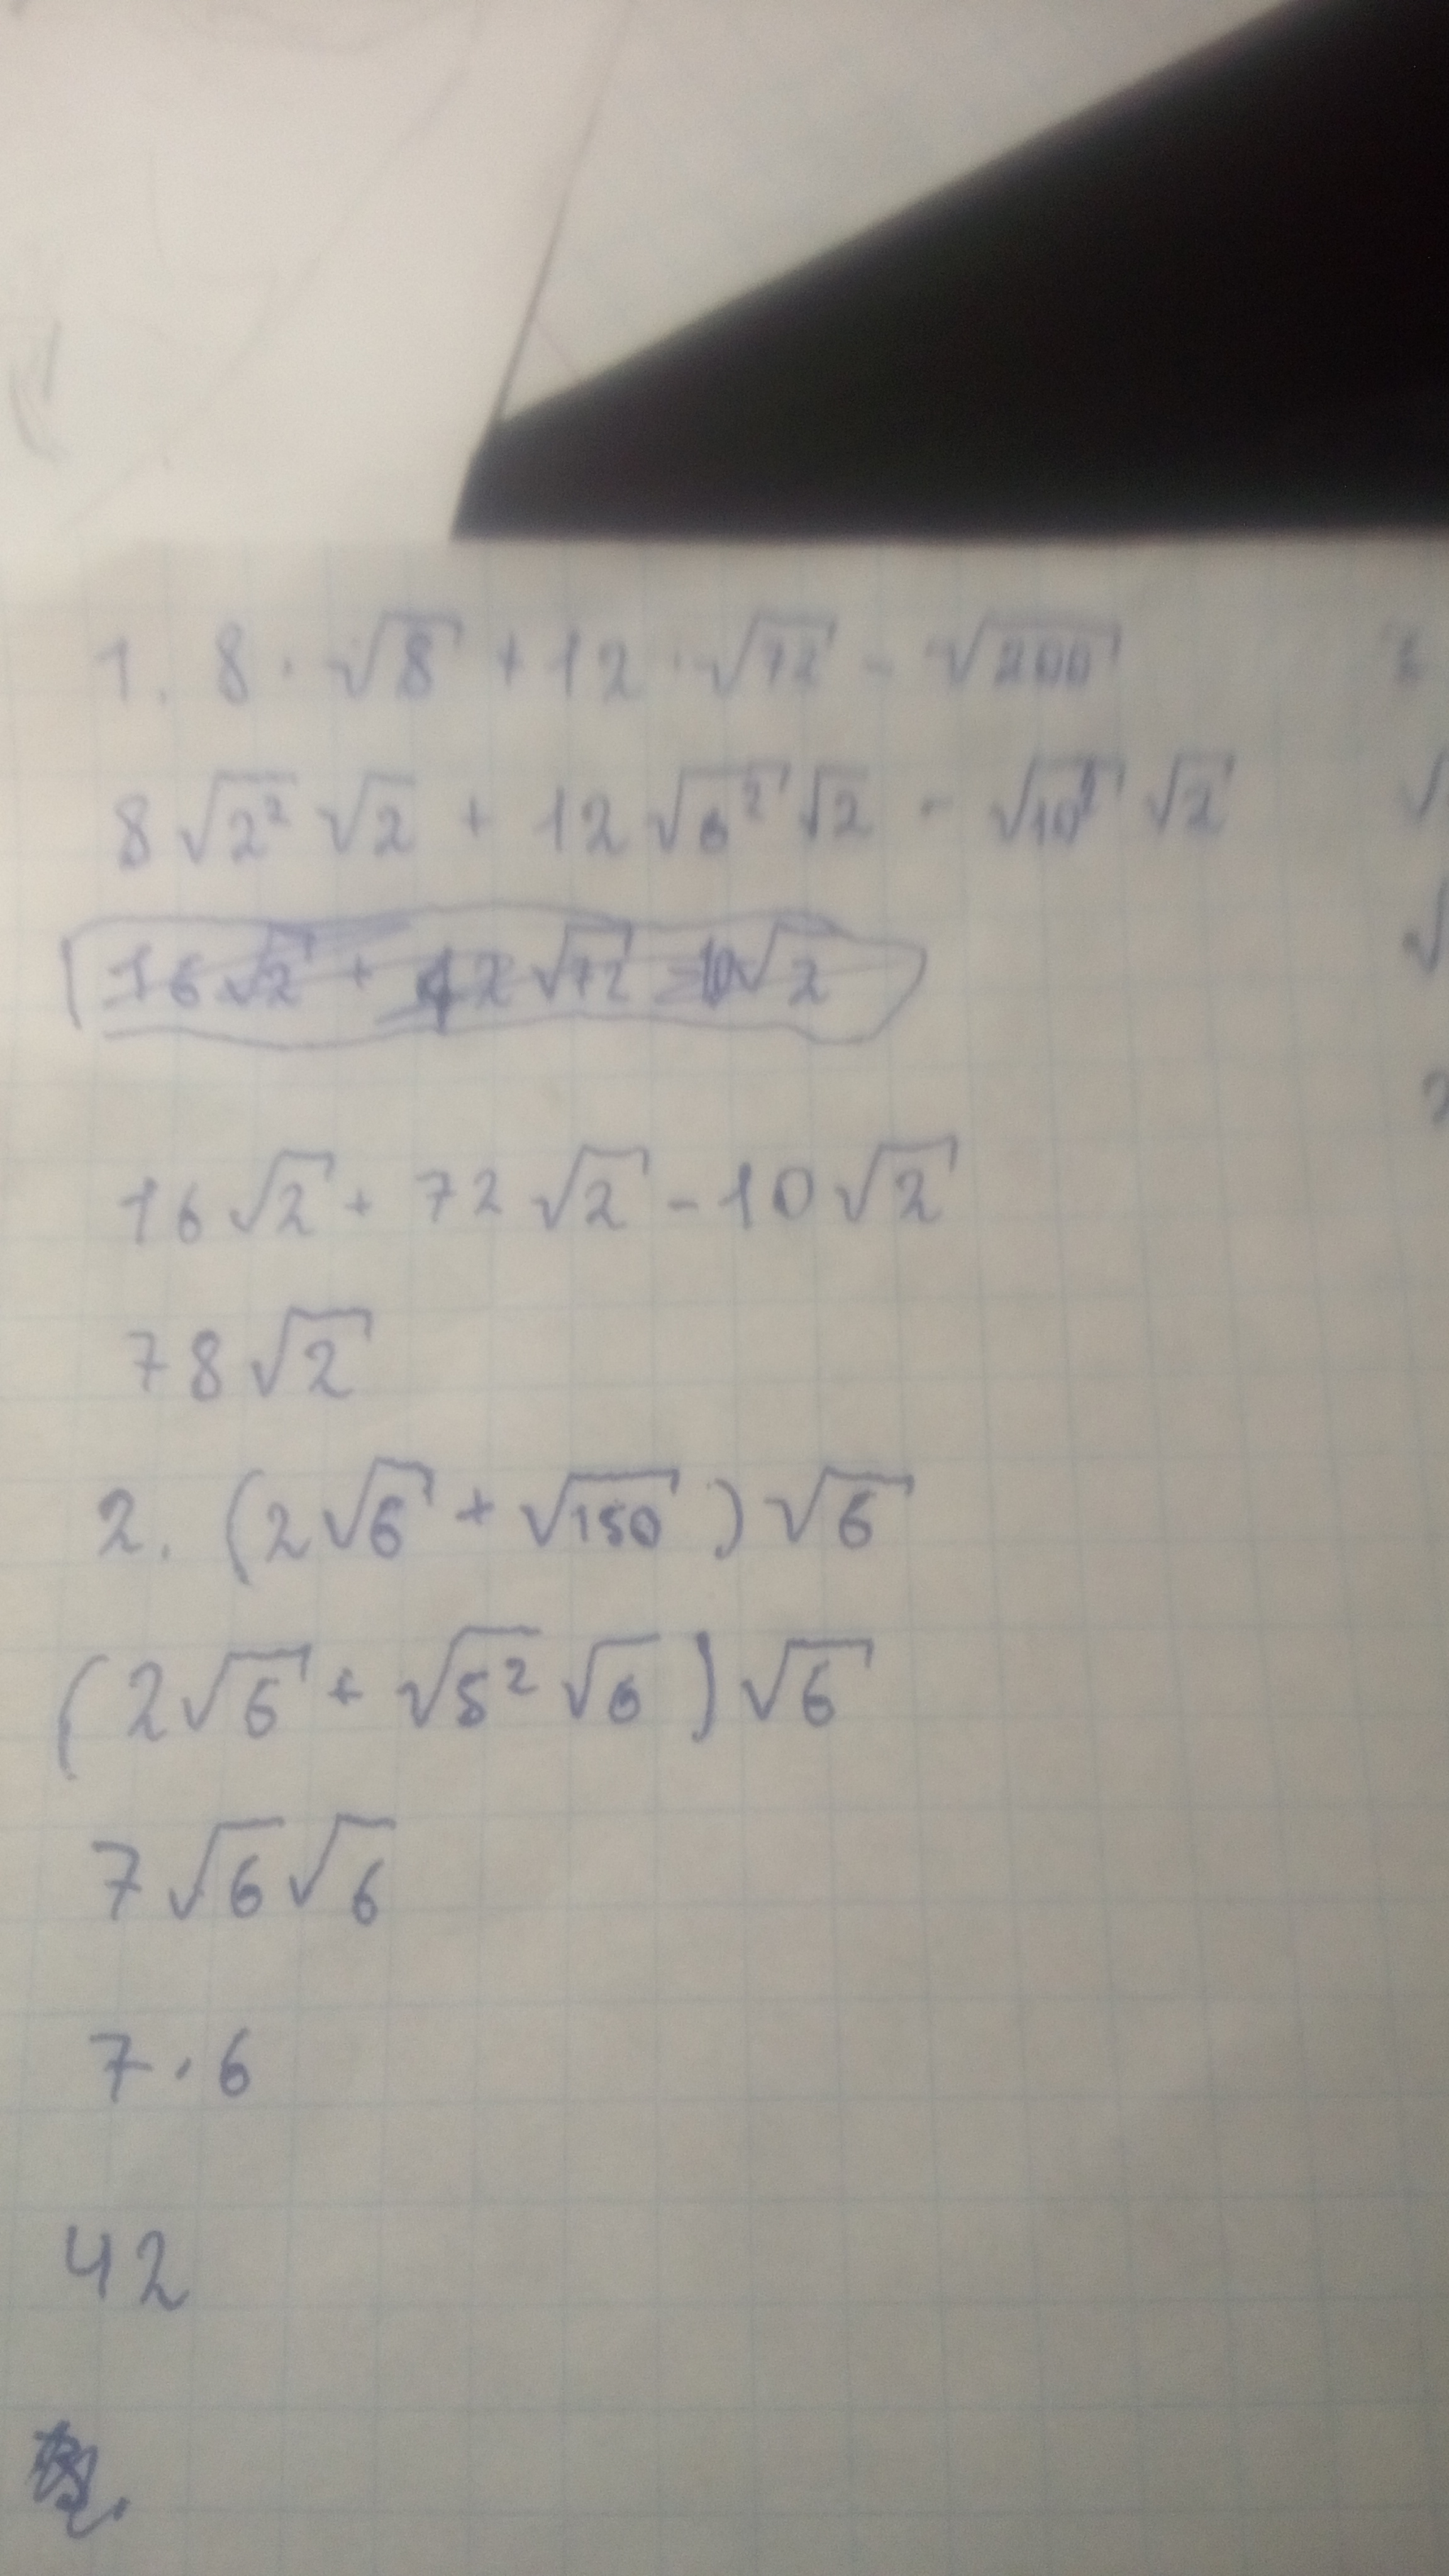 1. 8 · √8 + 12 · √72 - √200
8√2² √2 + 12√6² √2 - √10² √2
16√2 + 72√2 - 10√2
78√2
2. (2√6 + √150)√6
(2√6 + √5² √6)√6
7√6√6
7 · 6
42